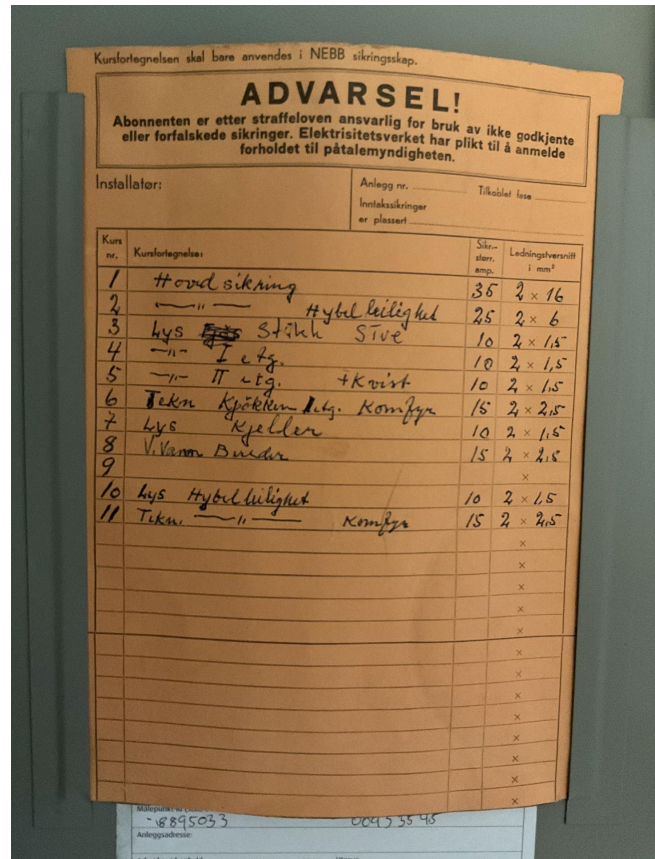 Kursfortegnelsen skal bare anvendes i NEBB sikringsskap.
ADVARSEL!
Abonnenten er etter straffeloven ansvarlig for bruk av ikke godkjente
eller forfalskede sikringer. Elektrisitetsverket har plikt til å anmelde
forholdet til påtalemyndigheten.
Installatør:
Anlegg nr. Tilkoblet fase
Inntakssikringer
er plassert
Kurs nr. Kursfortegnelse: Sikr.- størr. amp. Ledningstverrsnitt i mm²
1 Hovedsikring 35 2 × 16
2 —"— Hybelleilighet 25 2 × 6
3 Lys Stikk Stve 10 2 × 1,5
4 —"— I etg. 10 2 × 1,5
5 —"— II etg. + Kvist 10 2 × 1,5
6 Tekn Kjökken 1 etg. Komfyr 15 2 × 2,5
7 Lys Kjeller 10 2 × 1,5
8 V.Vann Bereder 15 2 × 2,5
9 ×
10 Lys Hybelleilighet 10 2 × 1,5
11 Tekn. —"— Komfyr 15 2 × 2,5
×
×
×
×
×
×
×
×
×
×
×
×
×
8895033
Anleggsadresse: